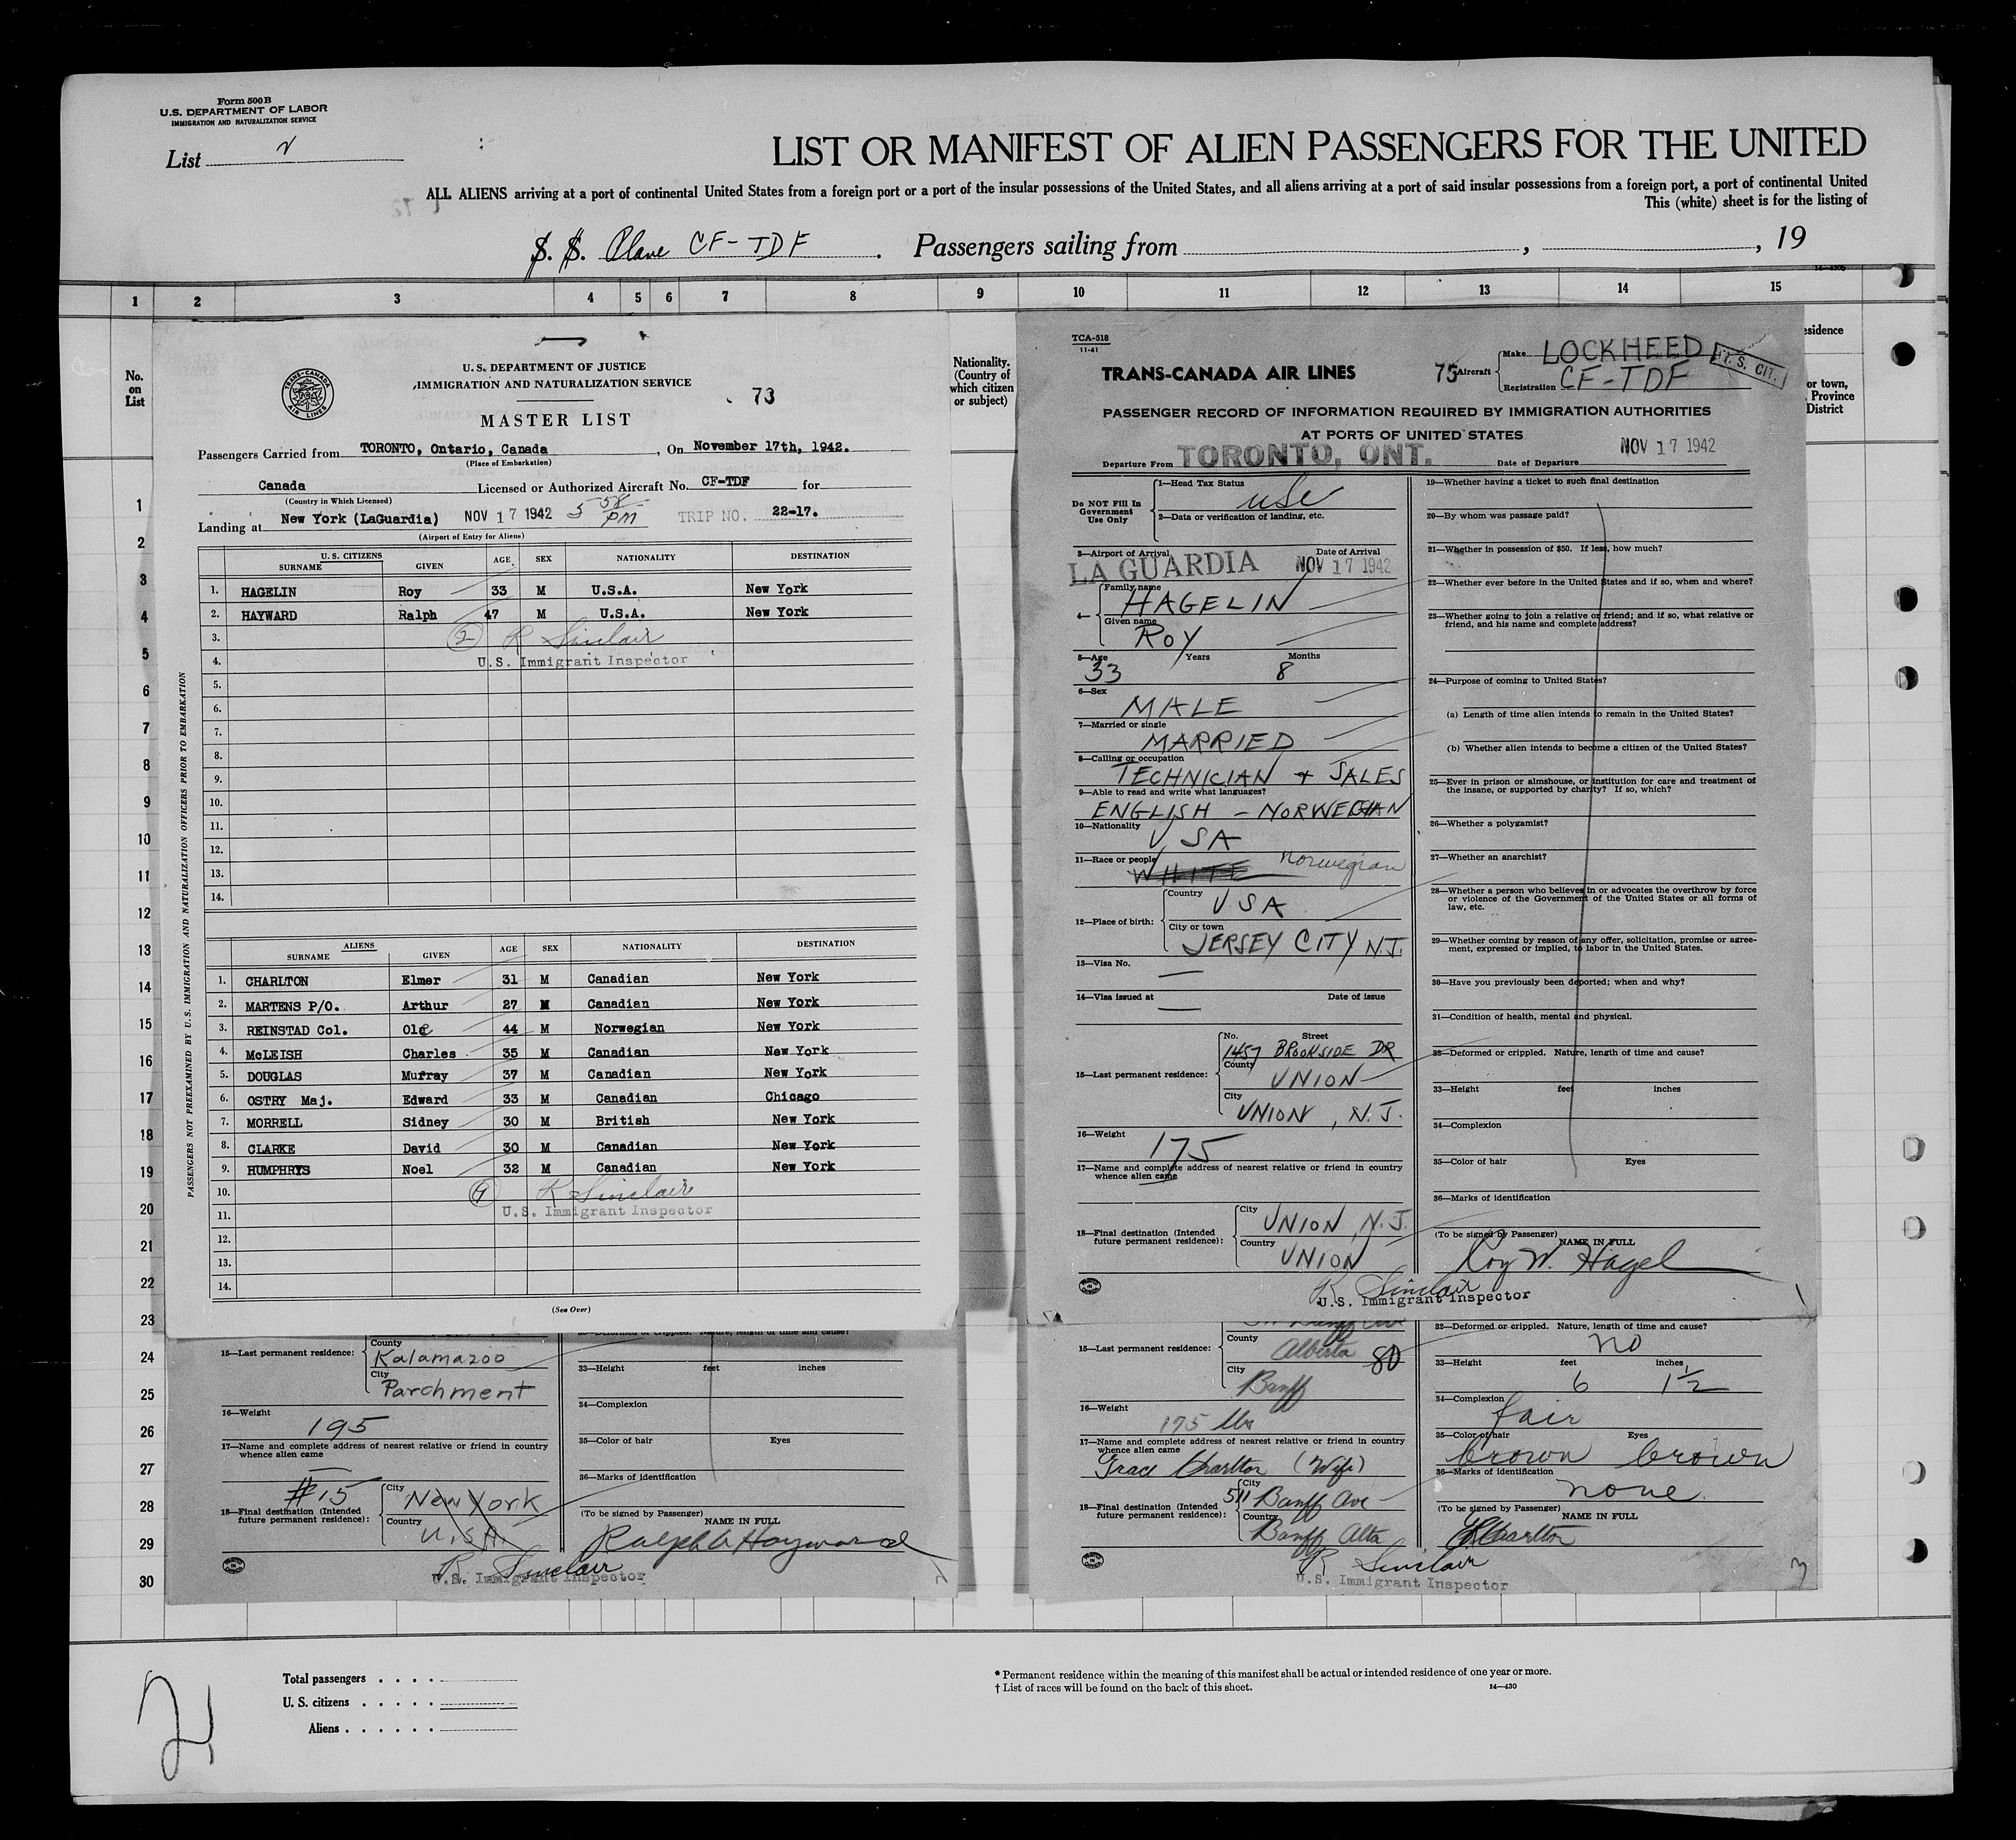 Form 500B
U.S. DEPARTMENT OF LABOR
IMMIGRATION AND NATURALIZATION SERVICE
List
LIST OR MANIFEST OF ALIEN PASSENGERS FOR THE UNITED
ALL ALIENS arriving at a port of continental United States from a foreign port or a port of the insular possessions of the United States, and all aliens arriving at a port of said insular possessions from a foreign port, a port of continental United
This (white) sheet is for the listing of
S. S. Plane CF-TDF . Passengers sailing from , , 19
1 2 3 4 5 6 7 8 9 10 11 12 13 14 15
No. on List
Nationality. (Country of which citizen or subject)
esidence
or town, Province District
1
2
3
4
5
6
7
8
9
10
11
12
13
14
15
16
17
18
19
20
21
22
23
24
25
26
27
28
29
30
TRANS-CANADA AIR LINES
U. S. DEPARTMENT OF JUSTICE
IMMIGRATION AND NATURALIZATION SERVICE
73
MASTER LIST
Passengers Carried from TORONTO, Ontario, Canada , On November 17th, 1942.
(Place of Embarkation)
Canada Licensed or Authorized Aircraft No. CF-TDF for
(Country in Which Licensed)
Landing at New York (LaGuardia) NOV 17 1942 5 58 PM TRIP NO. 22-17.
(Airport of Entry for Aliens)
U. S. CITIZENS
SURNAME GIVEN AGE SEX NATIONALITY DESTINATION
1. HAGELIN Roy 33 M U.S.A. New York
2. HAYWARD Ralph 47 M U.S.A. New York
3. (2) R Sinclair
4. U.S. Immigrant Inspector
5.
6.
7.
8.
9.
10.
11.
12.
13.
14.
ALIENS
SURNAME GIVEN AGE SEX NATIONALITY DESTINATION
1. CHARLTON Elmer 31 M Canadian New York
2. MARTENS P/O. Arthur 27 M Canadian New York
3. REINSTAD Col. Ole 44 M Norwegian New York
4. McLEISH Charles 35 M Canadian New York
5. DOUGLAS Murray 37 M Canadian New York
6. OSTRY Maj. Edward 33 M Canadian Chicago
7. MORRELL Sidney 30 M British New York
8. CLARKE David 30 M Canadian New York
9. HUMPHRYS Noel 32 M Canadian New York
10. (9) R Sinclair
11. U.S. Immigrant Inspector
12.
13.
14.
(See Over)
PASSENGERS NOT PREEXAMINED BY U.S. IMMIGRATION AND NATURALIZATION OFFICERS PRIOR TO EMBARKATION
TCA-518
11-41
TRANS-CANADA AIR LINES
75 Aircraft
Make LOCKHEED
Registration CF-TDF
U. S. CIT.
PASSENGER RECORD OF INFORMATION REQUIRED BY IMMIGRATION AUTHORITIES
AT PORTS OF UNITED STATES
Departure From TORONTO, ONT. Date of Departure NOV 17 1942
Do NOT Fill In Government Use Only
1—Head Tax Status
USC
2—Data or verification of landing, etc.
3—Airport of Arrival Date of Arrival
LA GUARDIA NOV 17 1942
4— Family name
HAGELIN
Given name
ROY
5—Age Years Months
33 8
6—Sex
MALE
7—Married or single
MARRIED
8—Calling or occupation
TECHNICIAN + SALES
9—Able to read and write what languages?
ENGLISH - NORWEGIAN
10—Nationality
USA
11—Race or people
WHITE Norwegian
12—Place of birth:
Country
USA
City or town
JERSEY CITY N.J.
13—Visa No.
—
14—Visa issued at Date of issue
—
15—Last permanent residence:
No. Street
1457 BROOKSIDE DR
County
UNION
City
UNION, N.J.
16—Weight
175
17—Name and complete address of nearest relative or friend in country whence alien came
18—Final destination (Intended future permanent residence):
City
UNION, N.J.
Country
UNION
19—Whether having a ticket to such final destination
20—By whom was passage paid?
21—Whether in possession of $50. If less, how much?
22—Whether ever before in the United States and if so, when and where?
23—Whether going to join a relative or friend; and if so, what relative or friend, and his name and complete address?
24—Purpose of coming to United States?
(a) Length of time alien intends to remain in the United States?
(b) Whether alien intends to become a citizen of the United States?
25—Ever in prison or almshouse, or institution for care and treatment of the insane, or supported by charity? If so, which?
26—Whether a polygamist?
27—Whether an anarchist?
28—Whether a person who believes in or advocates the overthrow by force or violence of the Government of the United States or all forms of law, etc.
29—Whether coming by reason of any offer, solicitation, promise or agreement, expressed or implied, to labor in the United States.
30—Have you previously been deported; when and why?
31—Condition of health, mental and physical.
32—Deformed or crippled. Nature, length of time and cause?
33—Height feet inches
34—Complexion
35—Color of hair Eyes
36—Marks of identification
(To be signed by Passenger) NAME IN FULL
Roy W. Hagel
R Sinclair
U.S. Immigrant Inspector
15—Last permanent residence:
County
Kalamazoo
City
Parchment
16—Weight
195
17—Name and complete address of nearest relative or friend in country whence alien came
—
#15
18—Final destination (Intended future permanent residence):
City
New York
Country
U.S.A.
33—Height feet inches
34—Complexion
35—Color of hair Eyes
36—Marks of identification
(To be signed by Passenger) NAME IN FULL
Ralph A Hayward
R. Sinclair
U.S. Immigrant Inspector
2
15—Last permanent residence:
County
Alberta 80
City
Banff
16—Weight
175 lbs
17—Name and complete address of nearest relative or friend in country whence alien came
Grace Charlton (Wife)
18—Final destination (Intended future permanent residence):
City
511 Banff Ave
Country
Banff Alta
32—Deformed or crippled. Nature, length of time and cause?
no
33—Height feet inches
6 1½
34—Complexion
fair
35—Color of hair Eyes
brown brown
36—Marks of identification
none.
(To be signed by Passenger) NAME IN FULL
Charlton
R Sinclair
U.S. Immigrant Inspector
3
2
Total passengers . . . .
U. S. citizens . . . . .
Aliens . . . . . .
* Permanent residence within the meaning of this manifest shall be actual or intended residence of one year or more.
† List of races will be found on the back of this sheet.
14—430